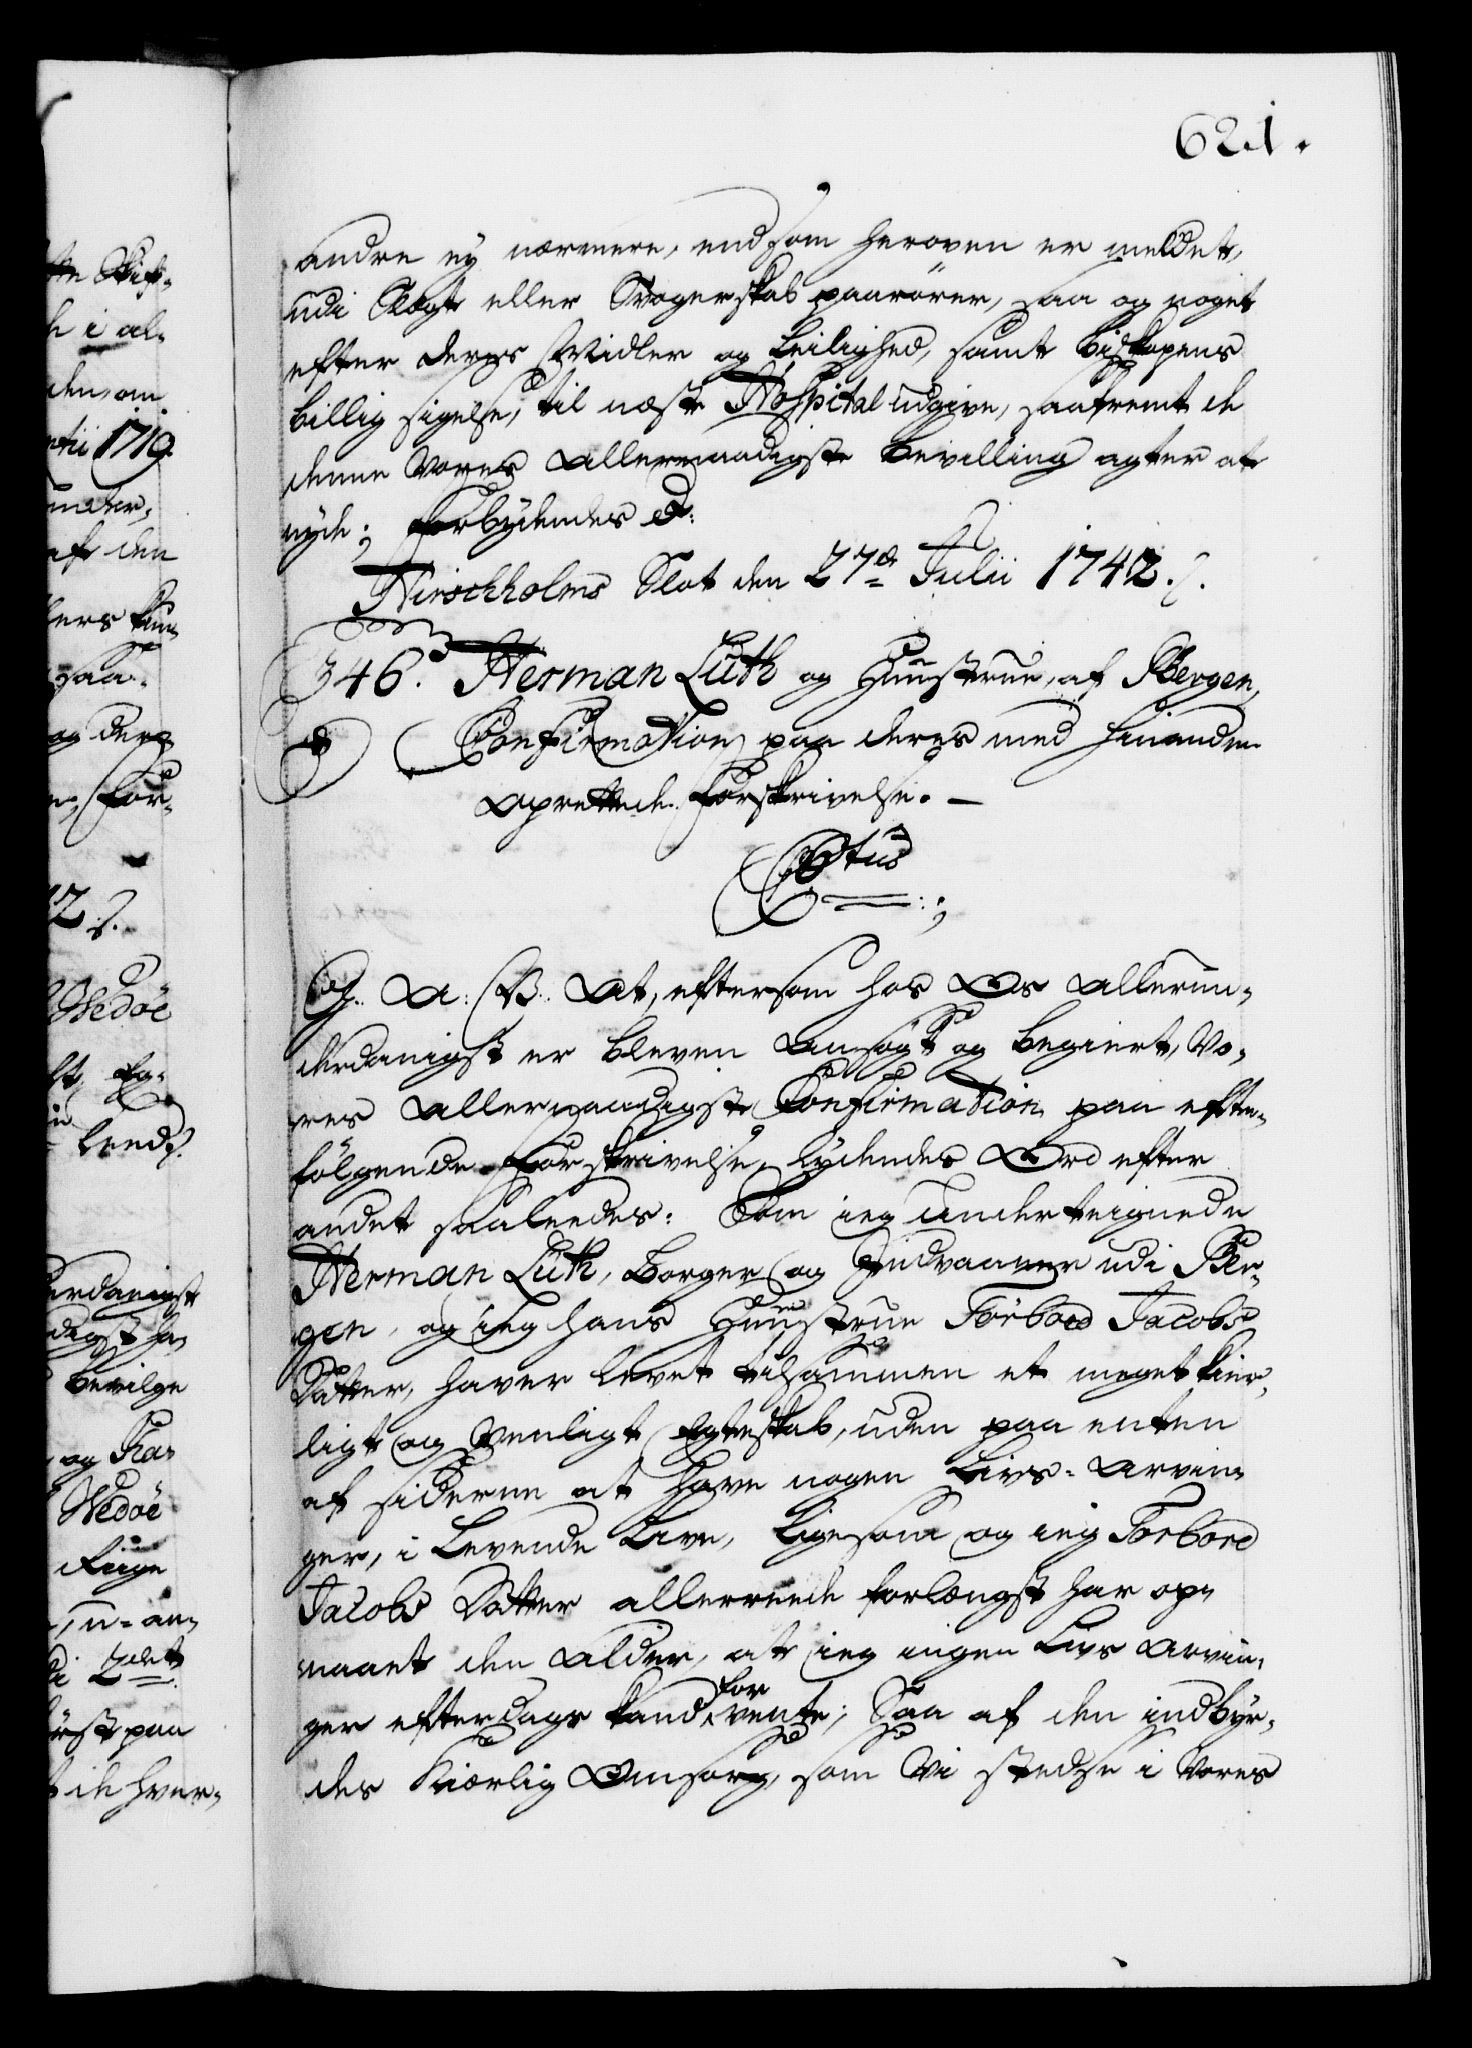 621.
andre ey nærmere, end som heroven er meldet,
udi Slægt eller Svogerskab paarører, saa og noget
efter deres Midler og Leilighed, samt Biskopens
billig sigelse, til næste Hospital udgive, saafremt de
denne Vores allernaadigste Bevilling agter at
nyde; Forbydendes &:
Hirschholms Slot den 27de Julii 1742.
346. Herman Lüth og Huustrue, af Bergen,
Confirmation paa deres med hinanden
oprettede Forskrivelse. –
C6tus
G. A: V: At, eftersom hos Os allerun-
derdanigst er bleven Ansøgt og begiert, Vo-
res allernaadigste Confirmation paa efter-
følgende Forskrivelse, lydendes Ord efter
andet saaledes: Som ieg underteignede
Herman Lüth, Borger og Indvaaner udi Ber-
gen, og ieg hans Huustrue Torbord Jacobs
Datter, haver levet tilsammen et meget kier-
ligt og Venligt Egteskab, uden paa enten
af siderne at have nogen Livs-Arvin-
ger, i Levende Live, ligesom og ieg Torbord
Jacobs Datter allerreede forlængst har op-
naaet den Alder, at ieg ingen Livs Arvin-
ger efterdags kand for vente; Saa af den indbyr-
des Kiærlig Omsorg, som Vi stedse i Vores